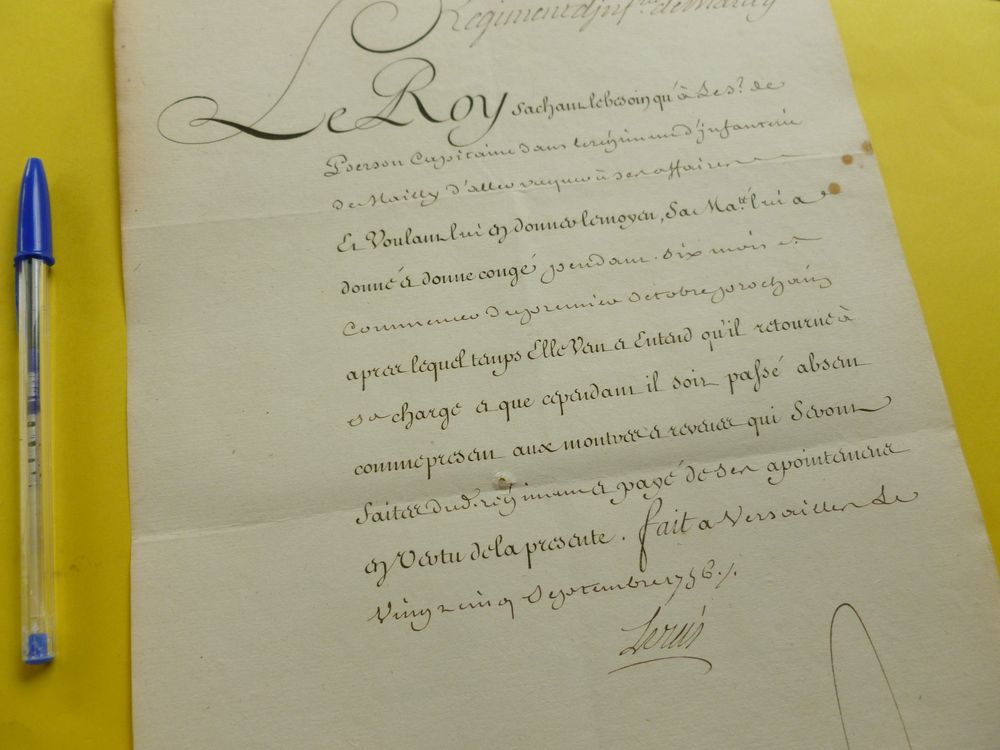 Regiment d'jnf.rie de Mailly
Le Roy sachant le besoin qu'à Le s.r de
Poerson Capitaine dans le regiment d'jnfanterie
de Mailly d'aller vaquer à ses affaires
Et Voulant lui en donner le moyen, Sa Ma.té lui a
donné et donne congé pendant six mois et
Commencer du premier Octobre prochain
apres lequel temps Elle Veut et Entend qu'il retourne à
sa charge et que cependant il soit passé absent
comme present aux montres et reveues qui Seront
faites dud. regiment et payé de ses apointemens
en Vertu de la presente. fait a Versailles Le
Vingt cinq Septembre 1756./.
Louis